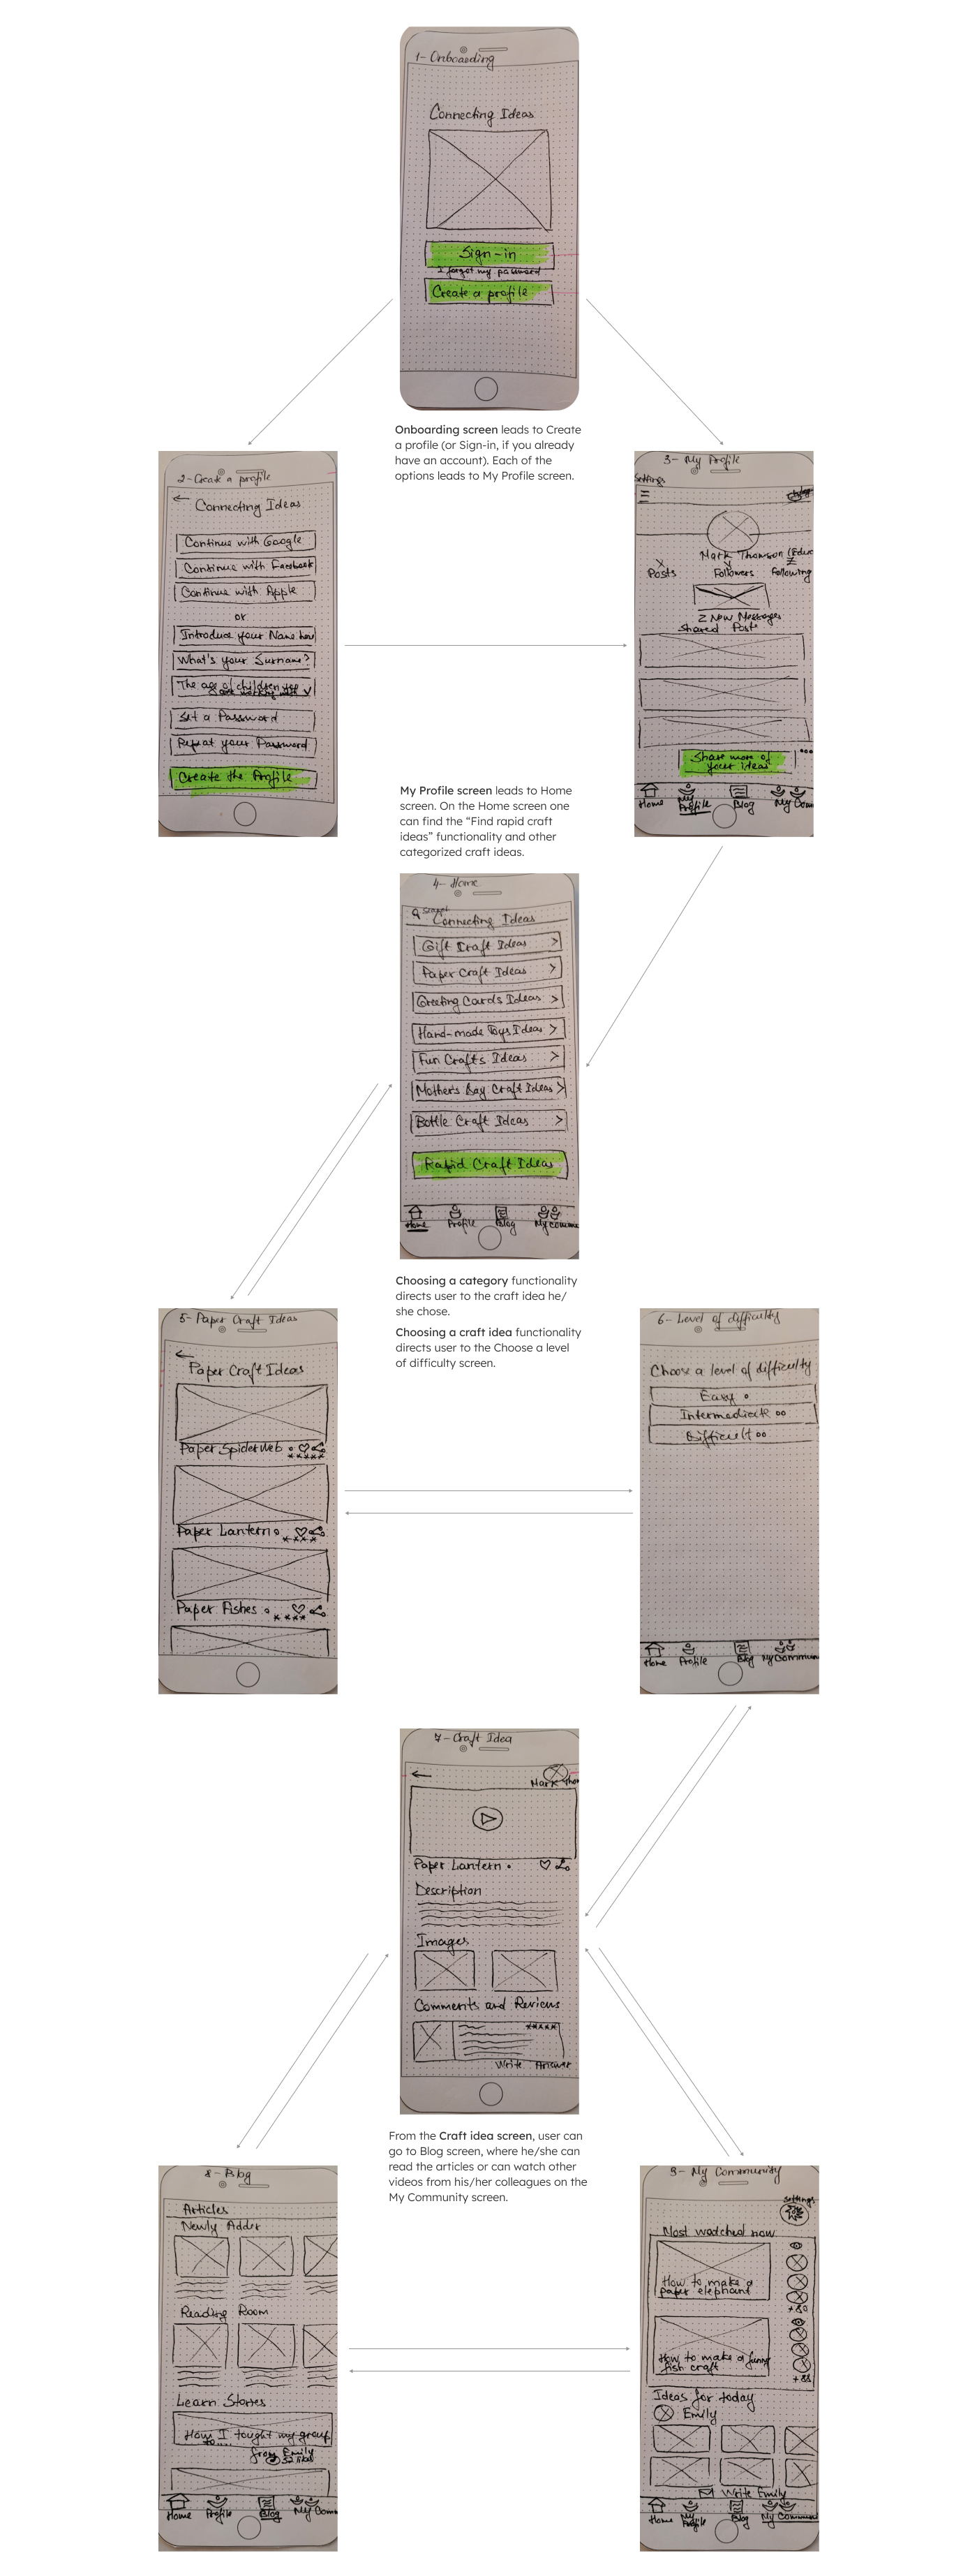 1- Onboarding
Connecting Ideas
Sign-in
I forgot my password
Create a profile
Onboarding screen leads to Create
a profile (or Sign-in, if you already
have an account). Each of the
options leads to My Profile screen.
2- Create a profile
Connecting Ideas
Continue with Google
Continue with Facebook
Continue with Apple
or
Introduce your Name here
What's your Surname?
The age of children you
are working with
Set a Password
Repeat your Password
Create the Profile
3- My Profile
Settings
Mark Thomson (Educ
Posts
Followers
Following
2 New Messages
Shared Posts
Share more of
your ideas
Home
My
Profile
Blog
My Com
My Profile screen leads to Home
screen. On the Home screen one
can find the “Find rapid craft
ideas” functionality and other
categorized craft ideas.
4- Home
Search
Connecting Ideas
Gift Craft Ideas >
Paper Craft Ideas >
Greeting Cards Ideas >
Hand-made Toys Ideas >
Fun Crafts Ideas >
Mother's Day Craft Ideas >
Bottle Craft Ideas >
Rapid Craft Ideas
Home
Profile
Blog
My Commu
Choosing a category functionality
directs user to the craft idea he/
she chose.
Choosing a craft idea functionality
directs user to the Choose a level
of difficulty screen.
5- Paper Craft Ideas
Paper Craft Ideas
Paper Spider Web
Paper Lantern
Paper Fishes
6- Level of difficulty
Choose a level of difficulty
Easy
Intermediate
Difficult
Home
Profile
Blog
My Commun
7- Craft Idea
Mark Thom
Paper Lantern
Description
Images
Comments and Reviews
Write Answer
From the Craft idea screen, user can
go to Blog screen, where he/she can
read the articles or can watch other
videos from his/her colleagues on the
My Community screen.
8- Blog
Articles
Newly Added
Reading Room
Learn Stories
How I tought my group
to...
from Emily
32 likes
Home
Profile
Blog
My Comm
9- My Community
Settings
Most watched now
How to make a
paper elephant
+80
How to make a funny
fish craft
+88
Ideas for today
Emily
Write Emily
Home
My
Profile
Blog
My Commun